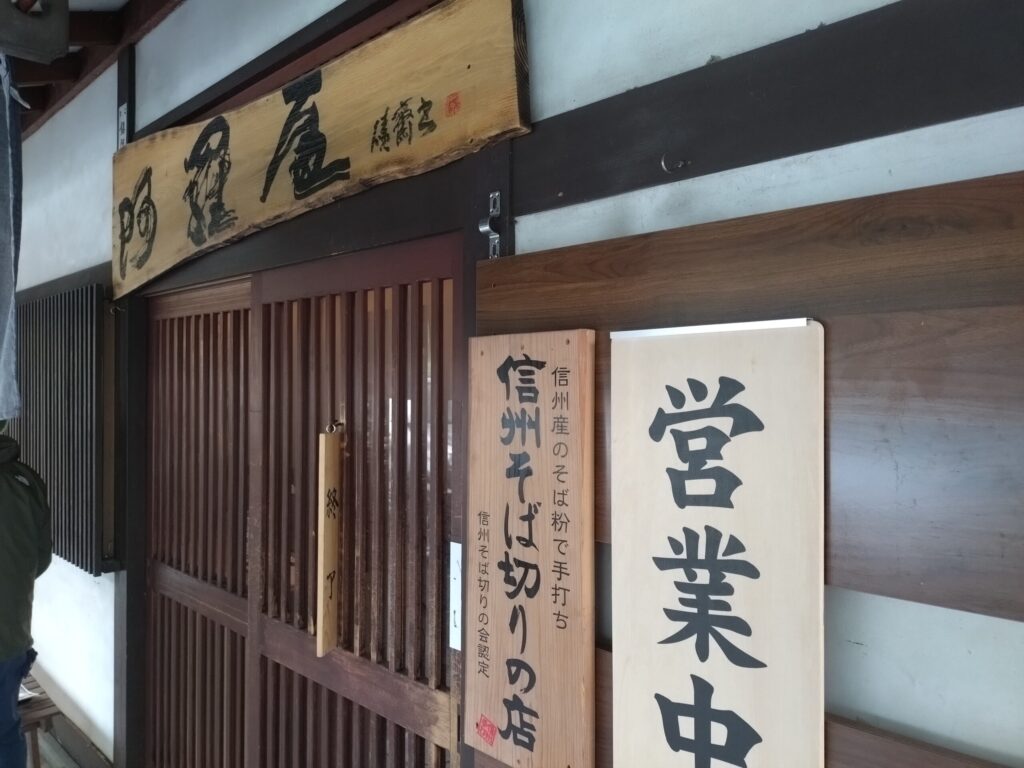 阿羅屋
終了
信州産のそば粉で手打ち
信州そば切りの店
信州そば切りの会認定
営業中